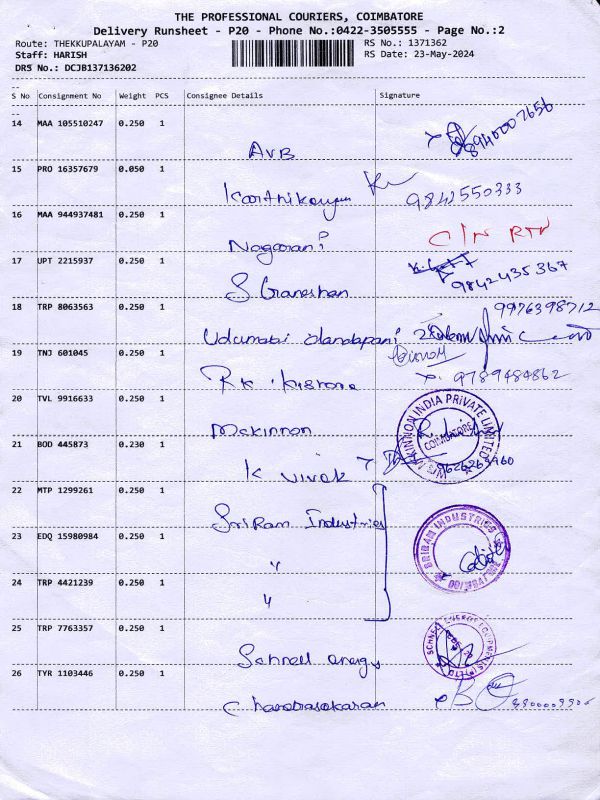 THE PROFESSIONAL COURIERS, COIMBATORE
Delivery Runsheet - P20 - Phone No.:0422-3505555 - Page No.:2
Route: THEKKUPALAYAM - P20 RS No.: 1371362
Staff: HARISH RS Date: 23-May-2024
DRS No.: DCJB137136202
S No Consignment No Weight PCS Consignee Details Signature
14 MAA 105510247 0.250 1
AVB 8940007656
15 PRO 16357679 0.050 1
Karthikeyan 9842550333
16 MAA 944937481 0.250 1
Nagarani C/N RTN
17 UPT 2215937 0.250 1
S. Ganeshan 9842435367
18 TRP 8063563 0.250 1
9976398712
Udumalai dandapani
19 TNJ 601045 0.250 1
RK. Kistone 9789484862
20 TVL 9916633 0.250 1
Mckinnon
MCKINNON INDIA PRIVATE LIMITED
COIMBATORE
21 BOD 445873 0.230 1
K vivek
22 MTP 1299261 0.250 1
SriRam Industries
SRIRAM INDUSTRIES
23 EDQ 15980984 0.250 1
"
24 TRP 4421239 0.250 1
"
25 TRP 7763357 0.250 1
Schnell energy
SCHNELL ENERGY EQUIPMENTS (P) LTD
26 TYR 1103446 0.250 1
Chandrasekaran